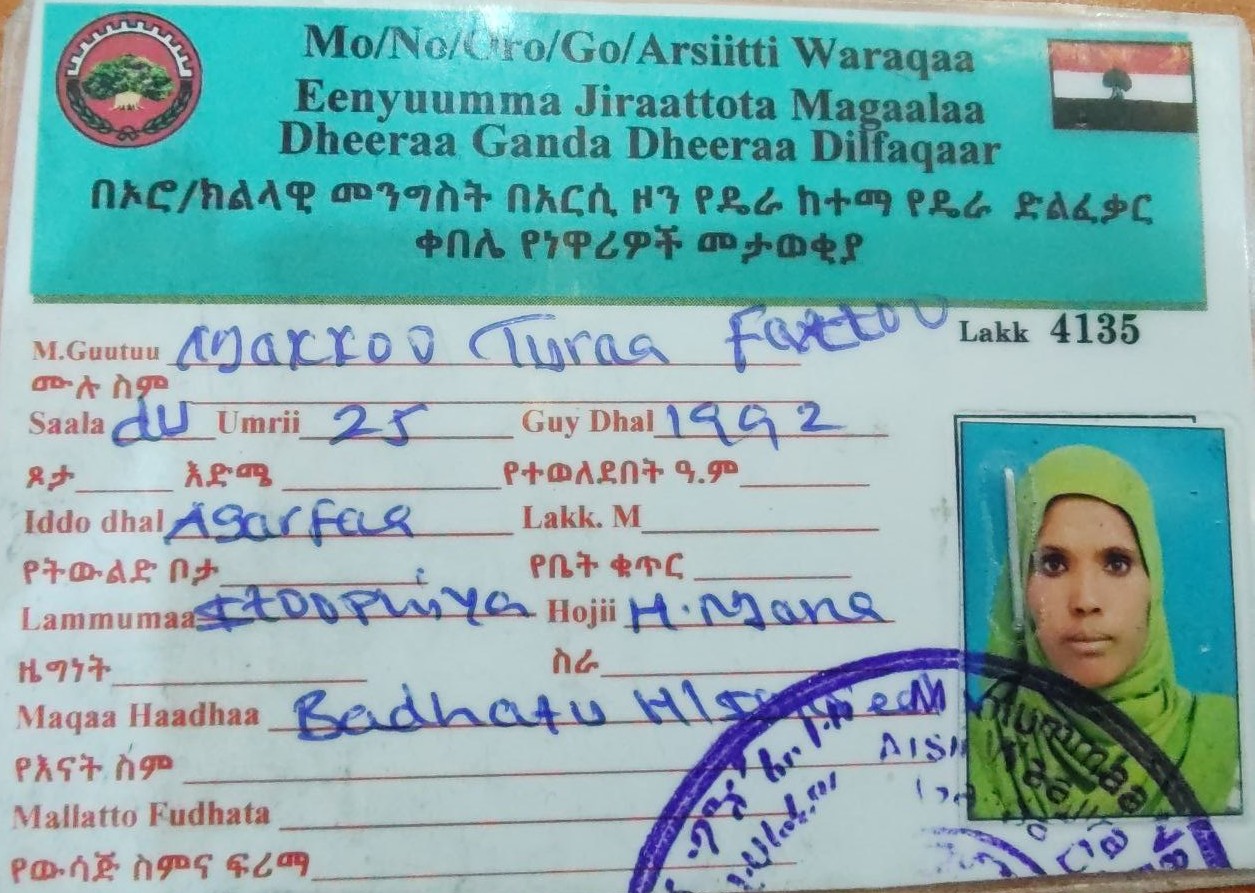 Mo/No/Oro/Go/Arsiitti Waraqaa
Eenyuumma Jiraattota Magaalaa
Dheeraa Ganda Dheeraa Dilfaqaar
በኦሮ/ክልላዊ መንግስት በአርሲ ዞን የዴራ ከተማ የዴራ ድልፈቃር
ቀበሌ የነዋሪዎች መታወቂያ
Lakk 4135
M.Guutuu Makkoo Turaa Fattoo
ሙሉ ስም
Saala du Umrii 25 Guy Dhal 1992
ጾታ እድሜ የተወለደበት ዓ.ም
Iddo dhal Agarfaa Lakk. M
የትውልድ ቦታ የቤት ቁጥር
Lammumaa Itoophiya Hojii H.Mana
ዜግነት ስራ
Maqaa Haadhaa Badhatu
የእናት ስም
Mallatto Fudhata
የውሳጅ ስምና ፍሪማ